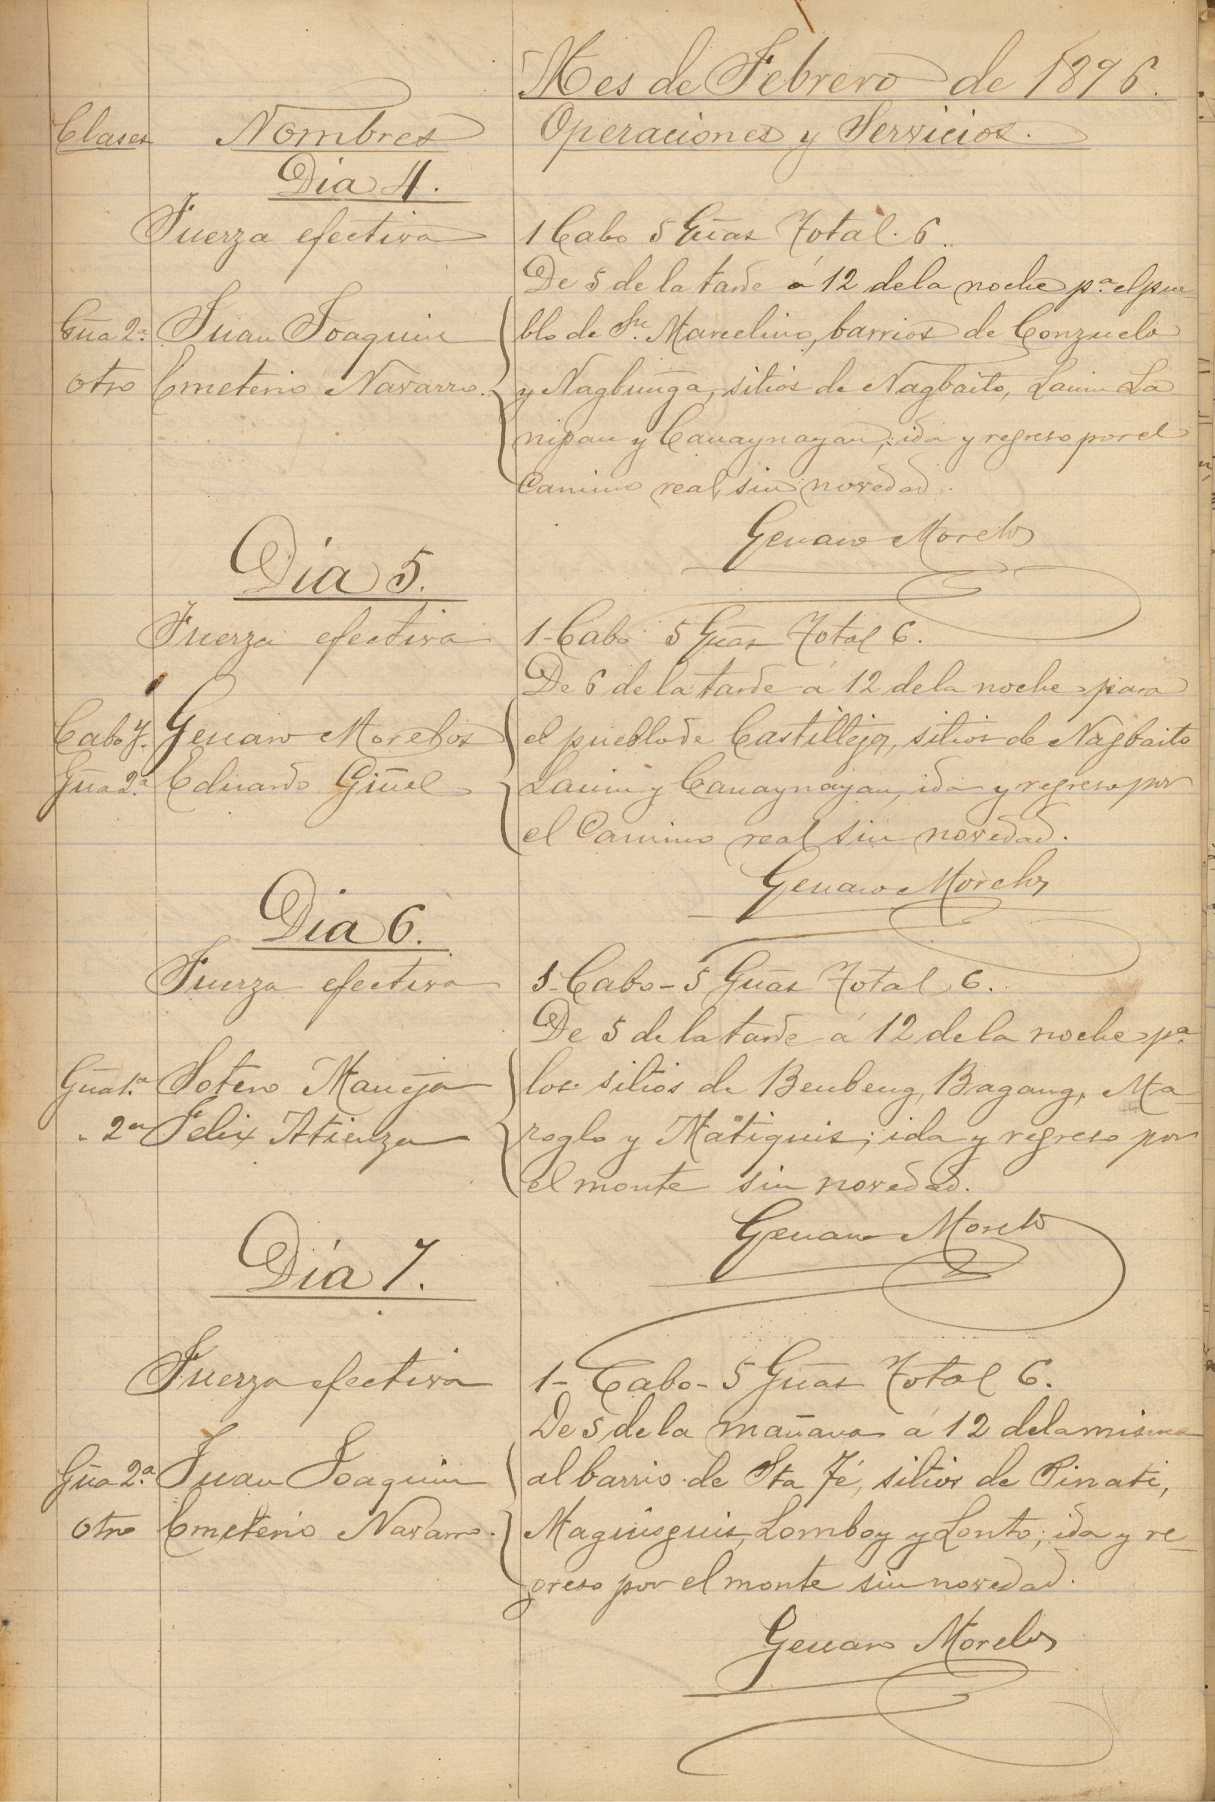 Mes de Febrero de 1896.
Clases Nombres Operaciones y Servicios.
Dia 4.
Fuerza efectiva 1 Cabo 5 Güas Total. 6.
De 5 de la tarde á 12 de la noche pª el pue
Güa 2ª. Juan Joaquin blo de Sn. Marcelino, barrios de Conzuelo
otro Emeterio Navarro. y Nagbunga, sitios de Nagbaito, Lauin La
nipau y Cauaynayan; ida y regreso por el
Camino real, sin novedad.
Genaro Morelos
Dia 5.
Fuerza efectiva 1-Cabo 5 Güas Total 6.
De 6 de la tarde á 12 de la noche para
Cabo J. Genaro Morelos el pueblo de Castillejos, sitios de Nagbaito
Güa 2ª. Eduardo Giñel Lauin y Cauaynayan, ida y regreso por
el Camino real sin novedad.
Genaro Morelos
Dia 6.
Fuerza efectiva 1-Cabo-5 Güas Total 6.
De 5 de la tarde á 12 de la noche pª
Güa 1.ª Sotero Maueja los sitios de Benbeng, Bagang, Ma-
" 2ª Felix Atienza roglo y Matiquis; ida y regreso por
el monte sin novedad.
Genaro Morelos
Dia 7.
Fuerza efectiva 1-Cabo-5 Güas Total 6.
De 5 de la mañana á 12 de la misma
Güa 2ª Juan Joaquin al barrio de Sta Fé, sitios de Pinati,
otro Emeterio Navarro. Maguisguis, Lomboy y Lonto; ida y re-
greso por el monte sin novedad.
Genaro Morelos